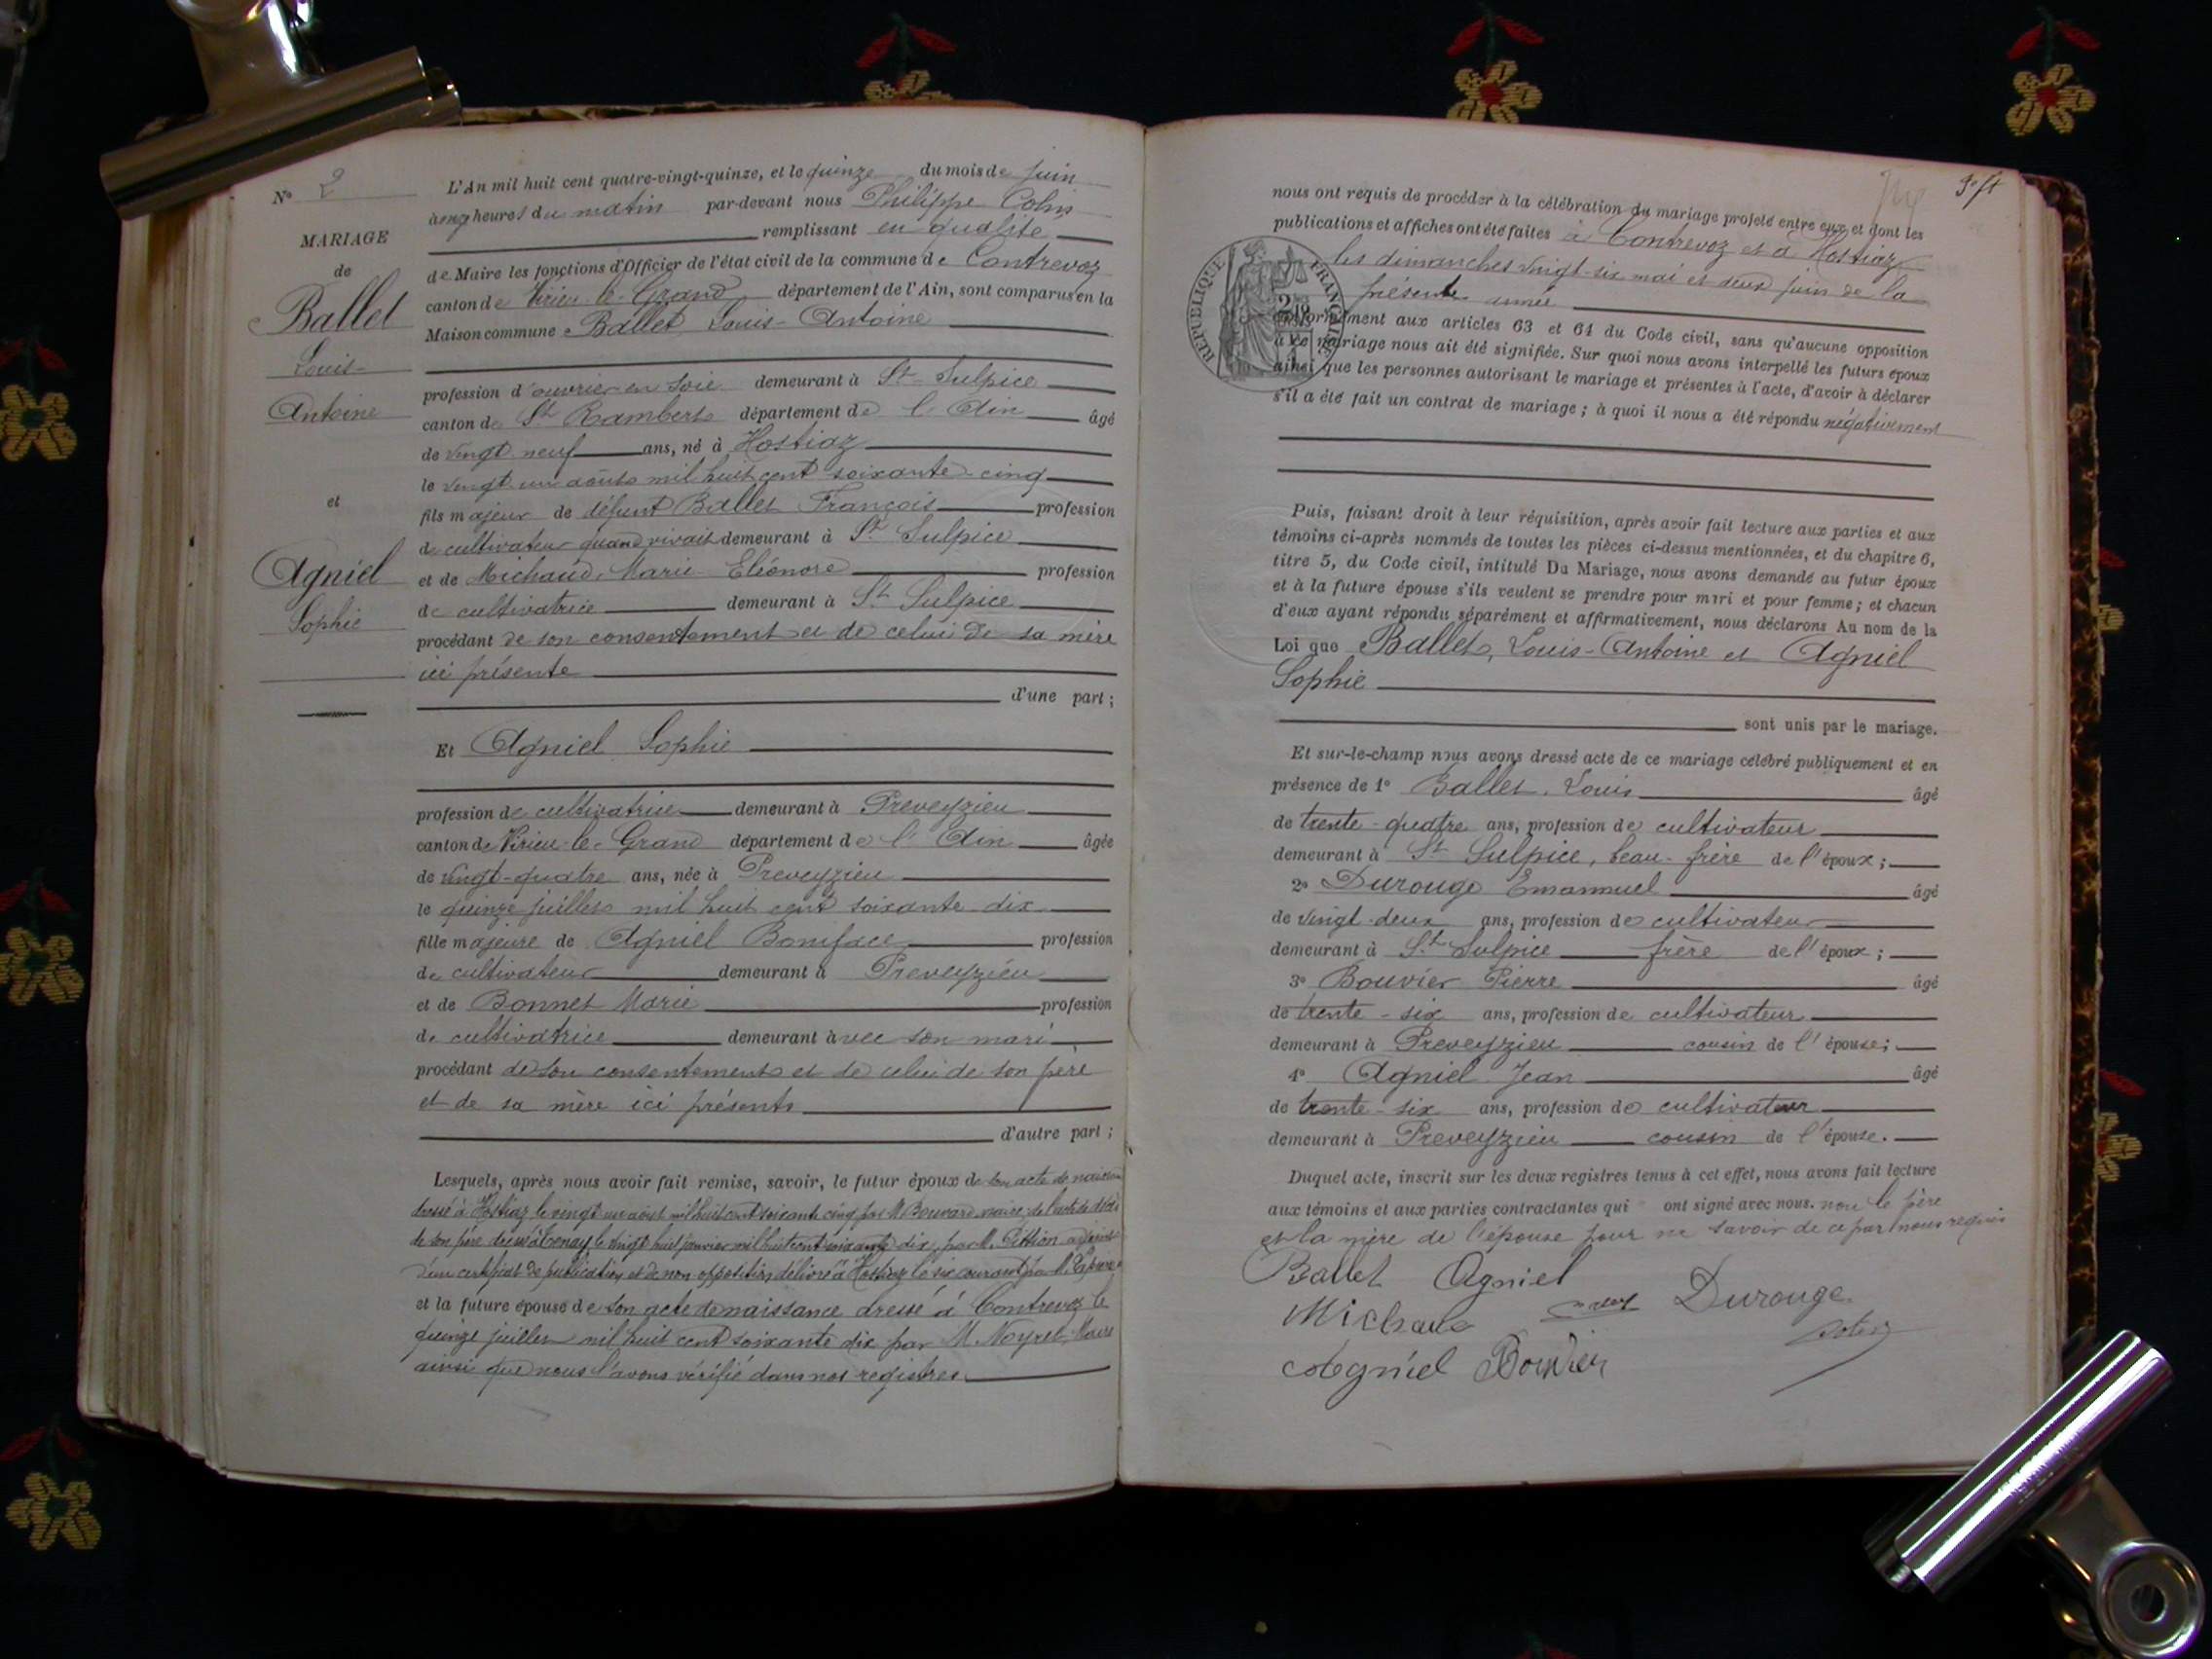 N° 2
MARIAGE
de
Ballet
Louis-
Antoine
et
Agniel
Sophie
L'An mil huit cent quatre-vingt-quinze, et le quinze du mois de juin
à onze heures du matin par-devant nous Philippe Colin
remplissant en qualité
de Maire les fonctions d'Officier de l'état civil de la commune de Contrevoz
canton de Virieu-le-Grand département de l'Ain, sont comparus en la
Maison commune Ballet Louis-Antoine
profession d'ouvrier en soie demeurant à St Sulpice
canton de St Rambert département de l'Ain âgé
de vingt neuf ans, né à Hostiaz
le vingt un août mil huit cent soixante-cinq
fils majeur de défunt Ballet François profession
de cultivateur quand vivait demeurant à St Sulpice
et de Michaud, Marie Eléonore profession
de cultivatrice demeurant à St Sulpice
procédant de son consentement et de celui de sa mère
ici présente
d'une part ;
Et Agniel Sophie
profession de cultivatrice demeurant à Preveyzieu
canton de Virieu-le-Grand département de l'Ain âgée
de vingt-quatre ans, née à Preveyzieu
le quinze juillet mil huit cent soixante-dix
fille majeure de Agniel Boniface profession
de cultivateur demeurant à Preveyzieu
et de Bonnet Marie profession
de cultivatrice demeurant avec son mari
procédant de son consentement et de celui de son père
et de sa mère ici présents
d'autre part ;
Lesquels, après nous avoir fait remise, savoir, le futur époux de son acte de naissance
dressé à Hostiaz le vingt un août mil huit cent soixante cinq par M. Bouvard maire, de l'acte de décès
de son père dressé à Tenay le vingt huit janvier mil huit cent soixante dix, par M. Pittion adjoint
d'un certificat de publication et de non opposition délivré à Hostiaz le six courant par M.
et la future épouse de son acte de naissance dressé à Contrevoz le
quinze juillet mil huit cent soixante dix par M. Noyret Maire
ainsi que nous l'avons vérifié dans nos registres
nous ont requis de procéder à la célébration du mariage projeté entre eux et dont les
publications et affiches ont été faites à Contrevoz et à Hostiaz
les dimanches vingt-six mai et deux juin de la
présente année
REPUBLIQUE FRANÇAISE
conformément aux articles 63 et 64 du Code civil, sans qu'aucune opposition
à ce mariage nous ait été signifiée. Sur quoi nous avons interpellé les futurs époux
ainsi que les personnes autorisant le mariage et présentes à l'acte, d'avoir à déclarer
s'il a été fait un contrat de mariage ; à quoi il nous a été répondu négativement
Puis, faisant droit à leur réquisition, après avoir fait lecture aux parties et aux
témoins ci-après nommés de toutes les pièces ci-dessus mentionnées, et du chapitre 6,
titre 5, du Code civil, intitulé Du Mariage, nous avons demandé au futur époux
et à la future épouse s'ils veulent se prendre pour mari et pour femme ; et chacun
d'eux ayant répondu séparément et affirmativement, nous déclarons Au nom de la
Loi que Ballet, Louis-Antoine et Agniel
Sophie
sont unis par le mariage.
Et sur-le-champ nous avons dressé acte de ce mariage célébré publiquement et en
présence de 1° Ballet, Louis âgé
de trente-quatre ans, profession de cultivateur
demeurant à St Sulpice, beau-frère de l'époux ;
2° Durouge Emannuel âgé
de vingt-deux ans, profession de cultivateur
demeurant à St Sulpice frère de l'époux ;
3° Bouvier Pierre âgé
de trente-six ans, profession de cultivateur
demeurant à Preveyzieu cousin de l'épouse ;
4° Agniel Jean âgé
de trente-six ans, profession de cultivateur
demeurant à Preveyzieu cousin de l'épouse.
Duquel acte, inscrit sur les deux registres tenus à cet effet, nous avons fait lecture
aux témoins et aux parties contractantes qui ont signé avec nous. non le père
et la mère de l'épouse pour ne savoir de ce par nous requis
Ballet Agniel
Durouge
Agniel Bouvier